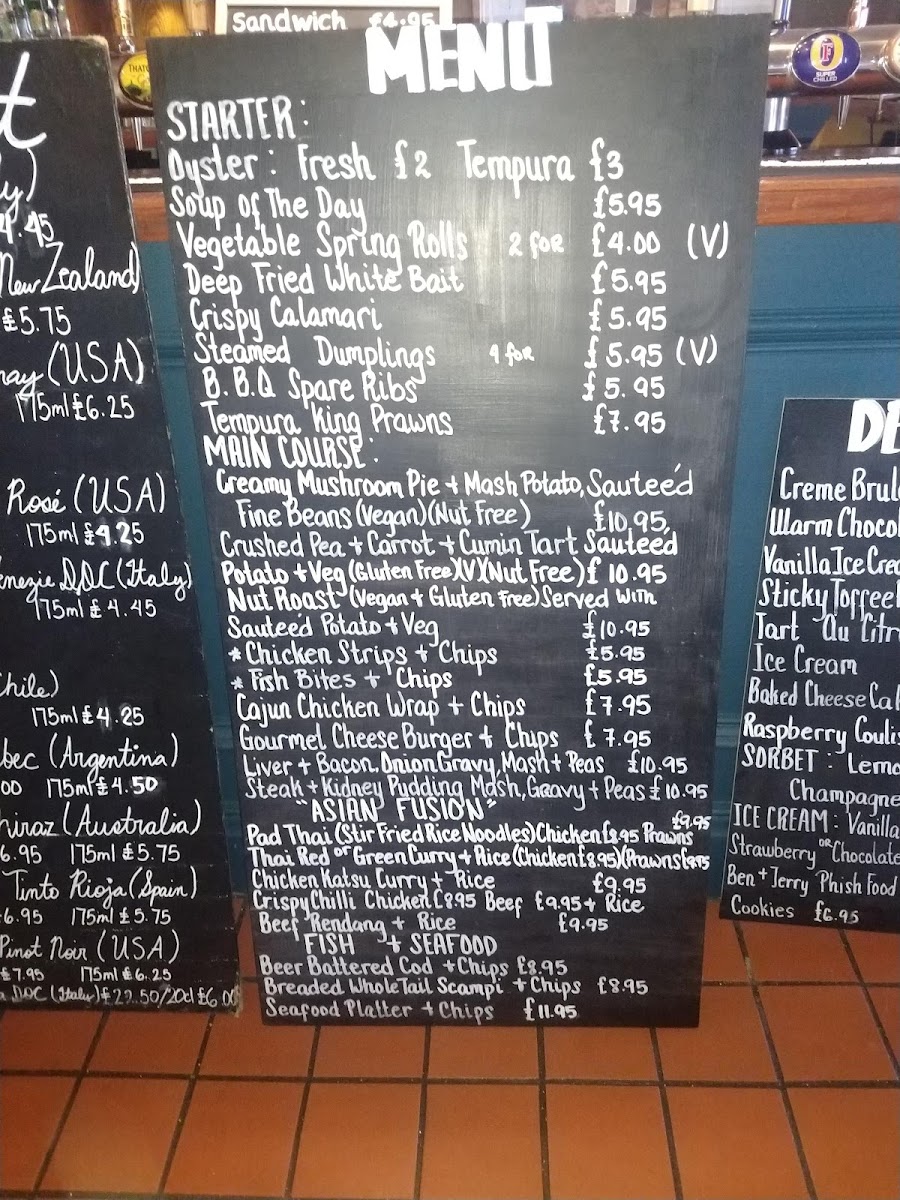 sandwich £4.95
MENU
STARTER:
Oyster: Fresh £2 Tempura £3
Soup of The Day £5.95
Vegetable Spring Rolls 2 for £4.00 (V)
Deep Fried White Bait £5.95
Crispy Calamari £5.95
Steamed Dumplings 4 for £5.95 (V)
B.B.Q Spare Ribs £5.95
Tempura King Prawns £7.95
MAIN COURSE:
Creamy Mushroom Pie + Mash Potato, Sauteéd
Fine Beans (Vegan)(Nut Free) £10.95,
Crushed Pea + Carrot + Cumin Tart Sauteéd
Potato + Veg (Gluten Free)(V)(Nut Free) £10.95
Nut Roast (Vegan + Gluten Free) Served with
Sauteéd Potato + Veg £10.95
* Chicken Strips + Chips £5.95
* Fish Bites + Chips £5.95
Cajun Chicken Wrap + Chips £7.95
Gourmet Cheese Burger + Chips £7.95
Liver + Bacon, Onion Gravy, Mash + Peas £10.95
Steak + Kidney Pudding Mash, Gravy + Peas £10.95
"ASIAN FUSION"
Pad Thai (Stir Fried Rice Noodles) Chicken £8.95 Prawns £9.95
Thai Red or Green Curry + Rice (Chicken £8.95)(Prawns £9.95
Chicken Katsu Curry + Rice £9.95
Crispy Chilli Chicken £8.95 Beef £9.95 + Rice
Beef Rendang + Rice £9.95
FISH + SEAFOOD
Beer Battered Cod + Chips £8.95
Breaded Whole Tail Scampi + Chips £8.95
Seafood Platter + Chips £11.95
4.45
New Zealand)
£5.75
(USA)
175ml £6.25
Rosé (USA)
175ml £4.25
D.O.C (Italy)
175ml £4.45
Chile)
175ml £4.25
(Argentina)
00 175ml £4.50
(Australia)
6.95 175ml £5.75
Tinto Rioja (Spain)
6.95 175ml £5.75
Pinot Noir (USA)
£7.95 175ml £6.25
DOC (Italy) £29.50/20cl £6.00
DE
Creme Brul
Warm Chocol
Vanilla Ice Crea
Sticky Toffee
Tart Au Citr
Ice Cream
Baked Cheese Ca
Raspberry Coulis
SORBET: Lemo
Champagne
ICE CREAM: Vanilla
Strawberry or Chocolate
Ben + Jerry Phish Food
Cookies £6.95
SUPER
CHILLED
THAT